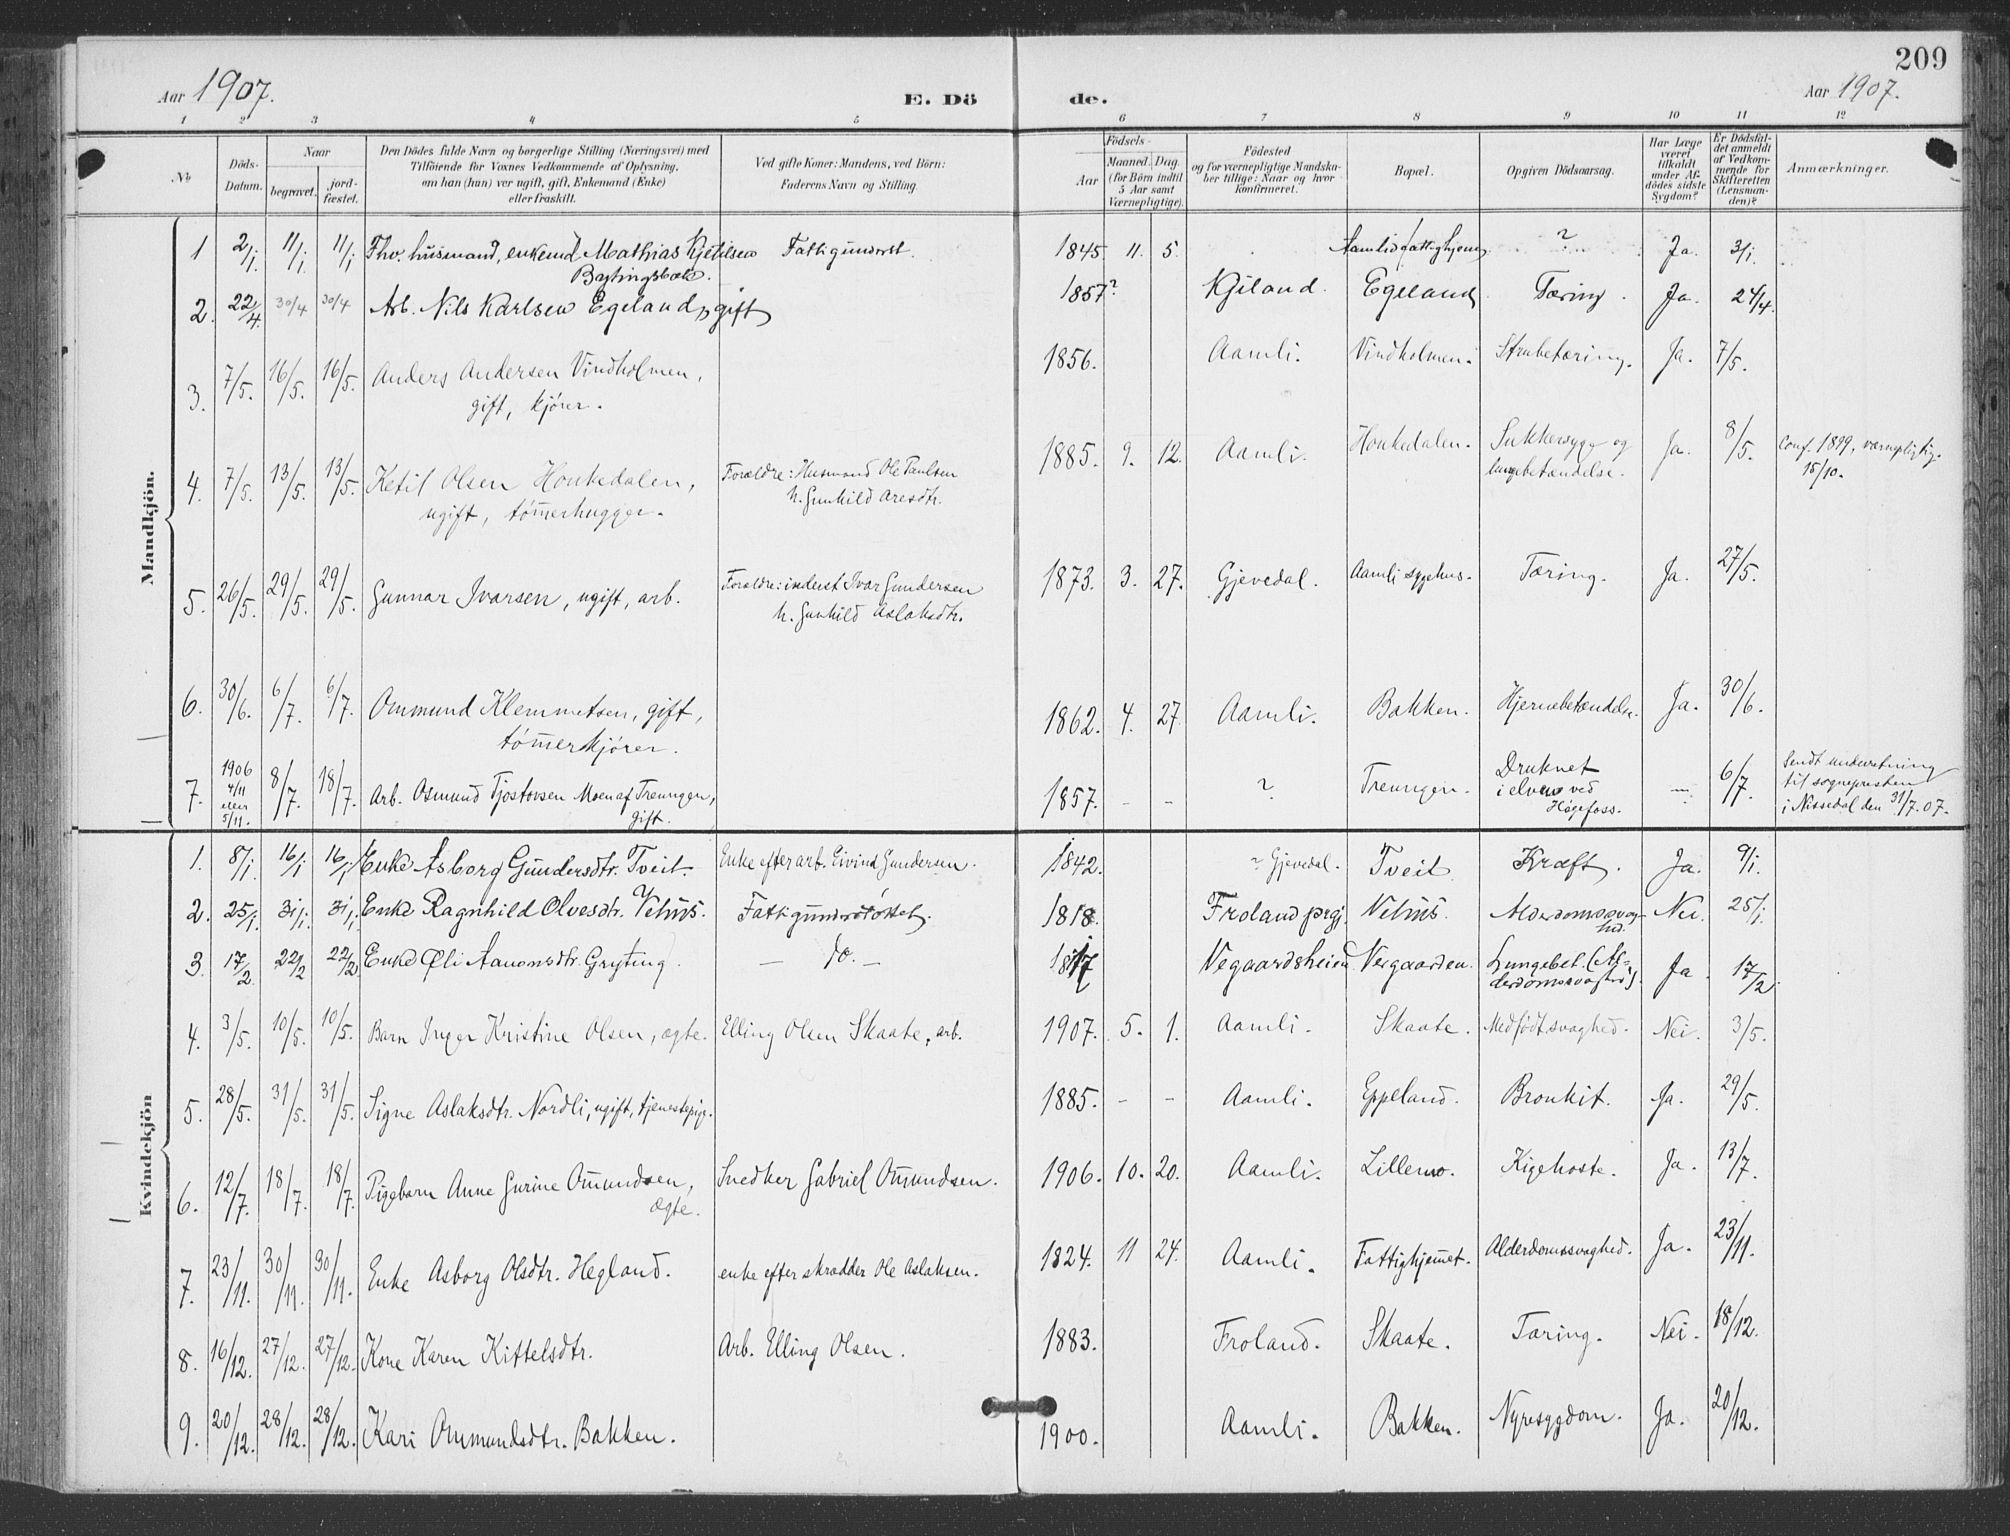 209
Aar 1907.
E. Döde.
Aar 1907.
1 2 3 4 5 6 7 8 9 10 11 12
No
Döds-Datum.
Naar
begravet.
jord-fæstet.
Den Dödes fulde Navn og borgerlige Stilling (Næringsvei) med
Tilföiende for Voxnes Vedkommende af Oplysning,
om han (hun) ver ugift, gift, Enkemand (Enke)
eller fraskilt.
Ved gifte Koner: Mandens, ved Börn:
Faderens Navn og Stilling.
Födsels-
Aar
Maaned. Dag.
(for Börn indtil
5 Aar samt
Værnepligtige).
Födested
og for værnepligtige Mandska-
ber tillige: Naar og hvor
konfirmeret.
Bopæl.
Opgiven Dödsaarsag.
Har Læge
været
tilkaldt
under Af-
dödes sidste
Sygdom?
Er Dödsfal-
det anmeldt
af Vedkom-
mende for
Skifteretten
(Lensman-
den)?
Anmærkninger.
Mandkjön.
1 2/1. 11/1 11/1 Fhv. husmand, enkemd Mathias Kjetilsen Fattigunderst. 1845 11. 5. Aamli fattighjem ? Ja. 3/1.
2. 22/4. 30/4 30/4 Arb. Nils Karlsen Egeland, gift 1857? Kjiland. Egeland Tæring. Ja. 24/4.
3. 7/5. 16/5. 16/5. Anders Andersen Vindholmen,
gift, kjører. 1856. Aamli. Vindholmen. Strubetæring. Ja. 7/5.
4. 7/5. 13/5. 13/5. Ketil Olsen Honkedalen,
ugift, tømerhugger. Forældre: Husmand Ole Paulsen
h. Gunhild Aresdtr. 1885. 9. 12. Aamli. Honkedalen. Sukkersyge og
lungebetændelse. Ja. 8/5. Conf. 1899, værnepligtig.
15/10.
5. 26/5. 29/5. 29/5. Gunnar Ivarsen, ugift, arb. Forældre: inderst Ivar Gundersen
h. Gunhild Aslaksdtr. 1873. 3. 27. Gjevedal. Aamli sygehus. Tæring. Ja. 27/5.
6. 30/6. 6/7. 6/7. Ommund Klemmetsen, gift,
tømerkjører. 1862. 4. 27. Aamli. Bakken. Hjernebetændelse. Ja. 30/6.
7. 1906 4/11 eller 5/11. 8/7. 18/7. Arb. Osmund Tjostovsen Moen af Treungen,
gift. 1857. - - ? Treungen. Druknet
i elven ved
Høgefoss. — 6/7. Sendt underretning
til sognepresten
i Nissedal den 31/7. 07.
Kvindekjön
1. 8/1. 16/1 16/1 Enke Asborg Gundersdtr. Tveit. Enke efter arb. Eivind Gundersen. 1842. ? Gjevedal. Tveit Kræft. Ja. 9/1.
2. 25/1. 31/1. 31/1. Enke Ragnhild Olvesdtr. Vehus. Fattigunderstøttet. 1818. Froland prgj. Vehus. Alderdomssvag-
hed. Nei. 25/1.
3. 17/2. 22/2 22/2 Enke Øli Aanonsdtr. Gryting. — do. — 1817 Vegaardsheien Vergaarden. Lungebet. (Al-
derdomssvaghed). Ja 17/2.
4. 3/5. 10/5. 10/5. Barn Inger Kristine Olsen, ægte. Elling Olsen Skaate, arb. 1907. 5. 1. Aamli. Skaate. Medfødt svaghed. Nei. 3/5.
5. 28/5. 31/5. 31/5. Signe Aslaksdtr. Nordli, ugift, tjenestepige. 1885. - - Aamli. Eppeland. Bronkit. Ja. 29/5.
6. 12/7. 18/7. 18/7. Pigebarn Anne Gurine Omundsen,
ægte. Snedker Gabriel Omundsen. 1906. 10. 20. Aamli. Lillemo. Kigehoste. Ja. 13/7.
7. 23/11. 30/11. 30/11. Enke Asborg Olsdtr. Hegland. enke efter skrædder Ole Aslaksen. 1824. 11 24. Aamli. Fattighjemet. Alderdomssvaghed. Ja. 23/11.
8. 16/12. 27/12. 27/12. Kone Karen Kittelsdtr. Arb. Elling Olsen. 1883. Froland. Skaate. Tæring. Nei. 18/12.
9. 20/12. 28/12. 28/12. Kari Ommundsdtr. Bakken. 1900. Aamli. Bakken. Nyresygdom. Ja. 20/12.